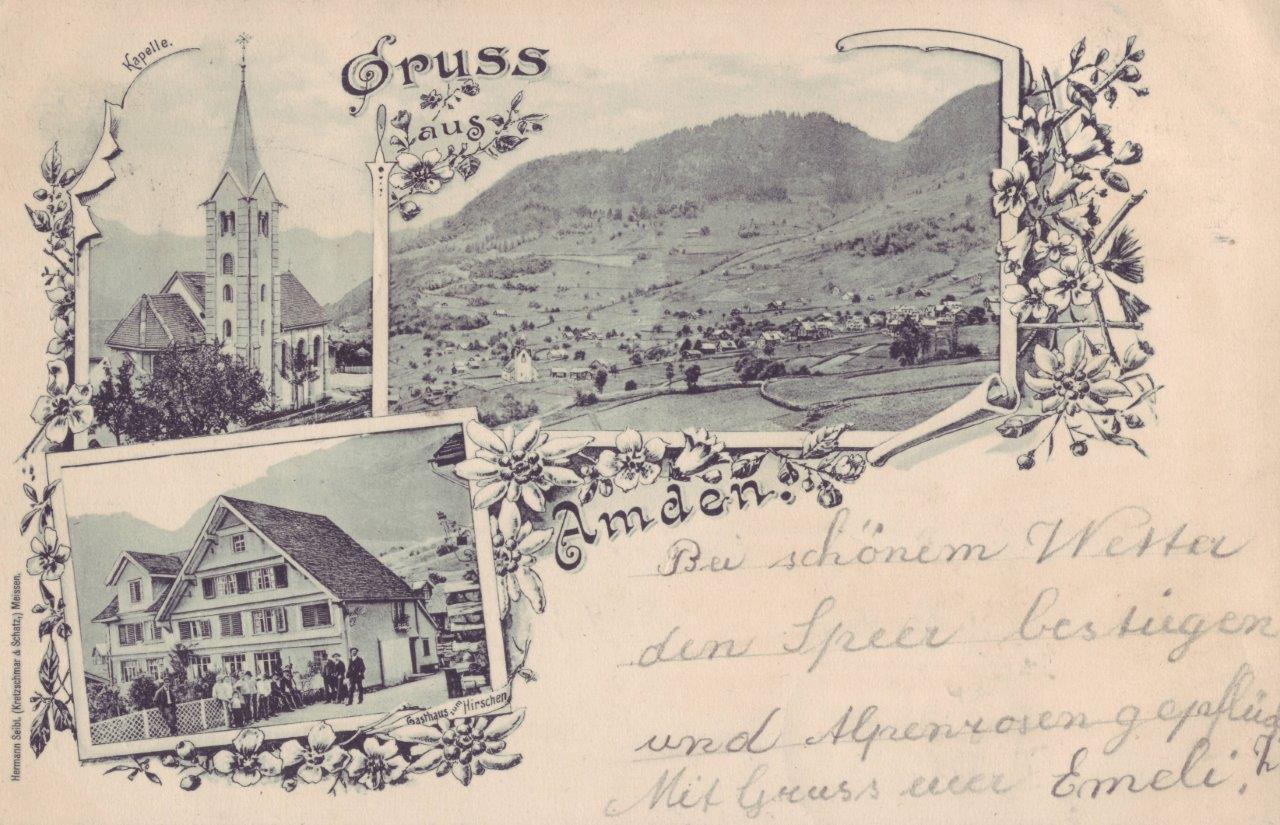 Kapelle.
Gruss
aus
Amden.
Gasthaus zum Hirschen
Hermann Seibt, (Kretzschmar & Schatz,) Meissen.
Bei schönem Wetter
den Speer bestiegen
und Alpenrosen gepflüg
Mit Gruss euer Emeli.